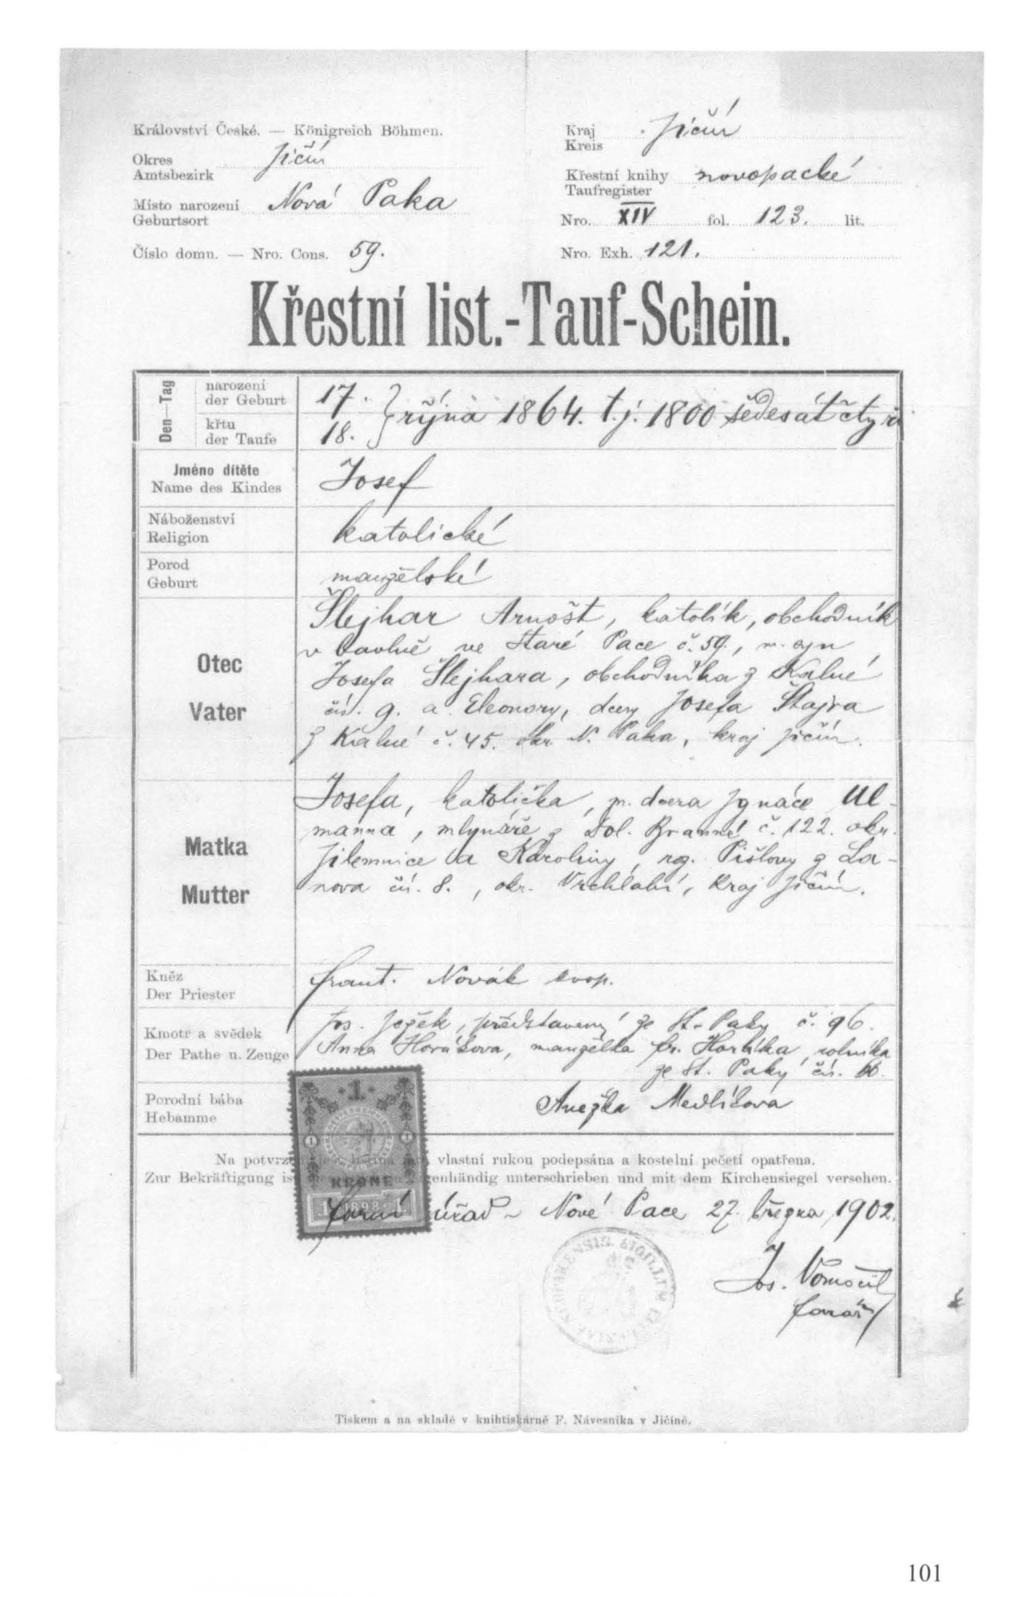 Království České. — Königreich Böhmen.
Okres Jičín
Amtsbezirk
Místo narození Nová Paka
Geburtsort
Číslo domu. — Nro. Cons. 59.
Kraj Jičín
Kreis
Křestní knihy novopacké
Taufregister
Nro. XIV fol. 123. lit.
Nro. Exh. 121.
Křestní list.-Tauf-Schein.
Den—Tag
narození 17.
der Geburt
křtu 18.
der Taufe
října 1864. t.j. 1800 šedesát čtyři
Jméno dítěte Josef
Name des Kindes
Náboženství katolické
Religion
Porod manželské
Geburt
Otec
Vater
Šlejhar Arnošt, katolík, obchodník
v bavlně ve Staré Pace č. 59., m. syn
Josefa Šlejhara, obchodníka z Kalné
čís. 9. a Eleonory, dcery Josefa Štajra
z Kalné č. 45. okr. N. Paka, kraj Jičín.
Matka
Mutter
Josefa, katolička, m. dcera Ignáce Ul-
manna, mlynáře z Dol. Branné č. 122. okr.
Jilemnice a Karoliny, roz. Pišlovy z La-
nova čís. 8., okr. Vrchlabí, kraj Jičín.
Kněz Frant. Novák
Der Priester
Kmotr a svědek
Der Pathe u. Zeuge
Jos. Ježek, představený ze St. Paky č. 96.
Anna Horáková, manželka Fr. rolníka
ze St. Paky čís.
Porodní bába Anežka Medlíková
Hebamme
Na vlastní rukou podepsána a kostelní pečetí opatřena.
Zur Bekräftigung unterschrieben und mit dem Kirchensiegel versehen.
1
KRONE
1898
Farní úřad v Nové Pace 27. března 1902.
Jos. Vomočil
farář
Tiskem a na skladě v knihtiskárně F. Návesníka v Jičíně.
101